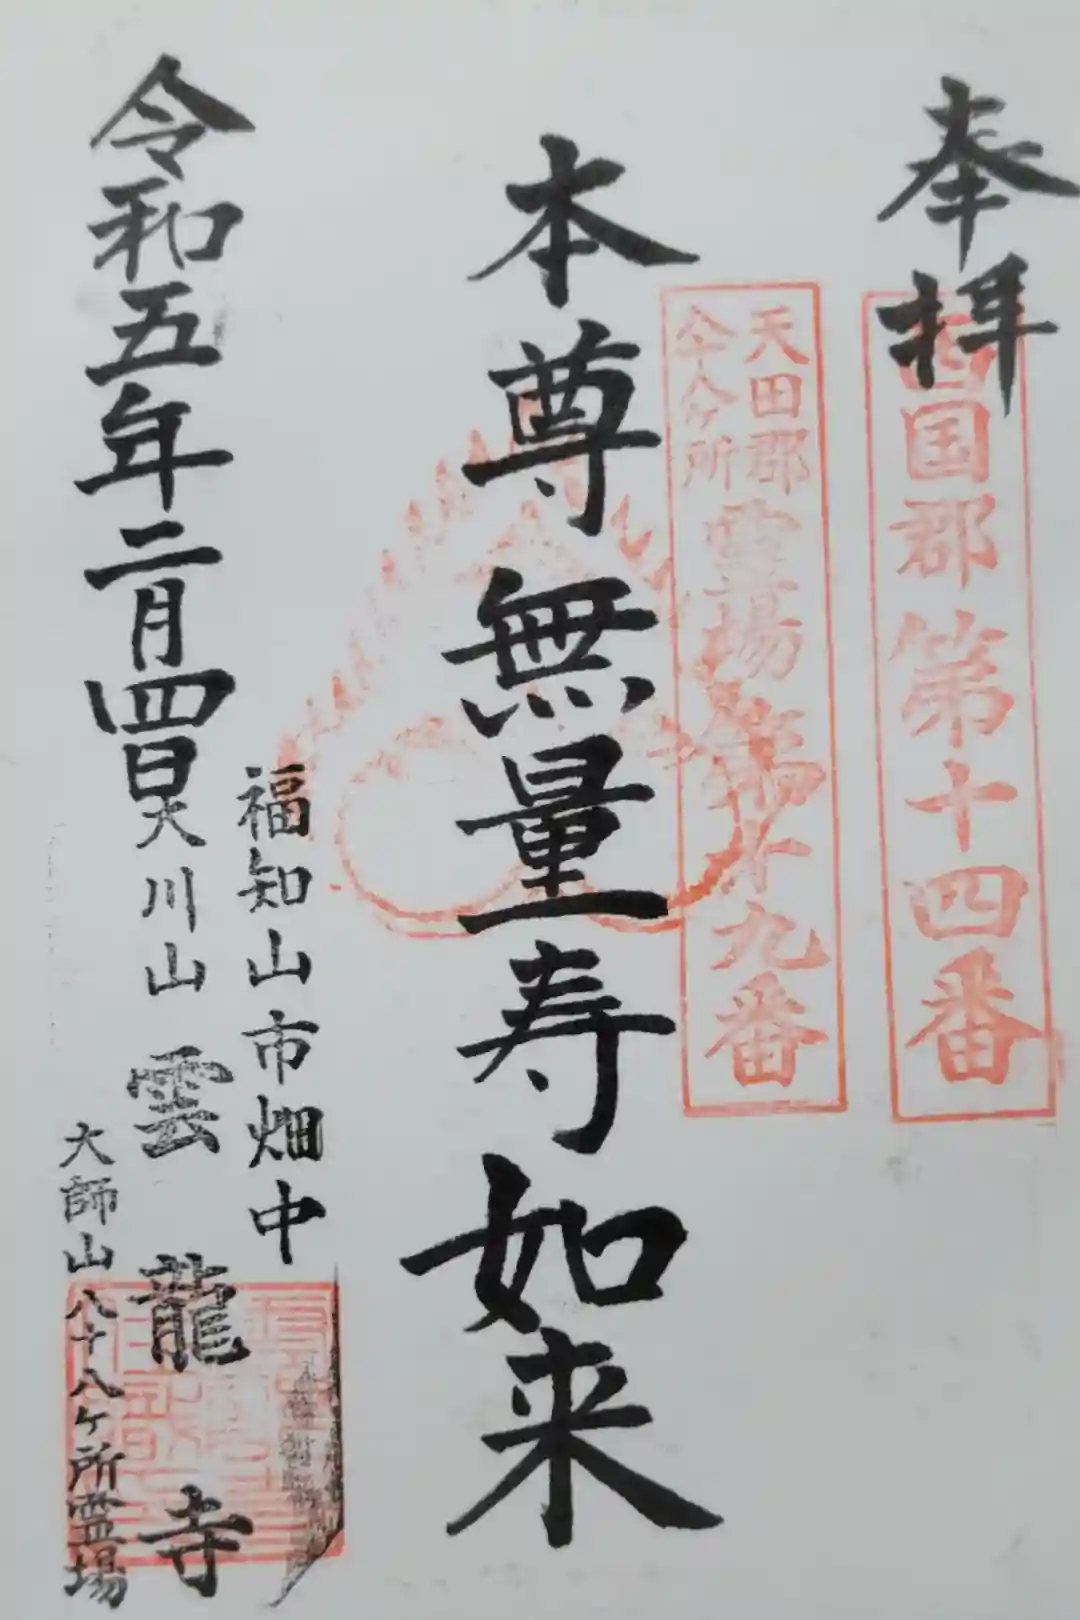 奉拝
西国郡第十四番
天田郡
霊場第十九番
本尊無量寿如来
福知山市畑中
令和五年二月四日
大川山雲龍寺
大師山八十八ヶ所霊場